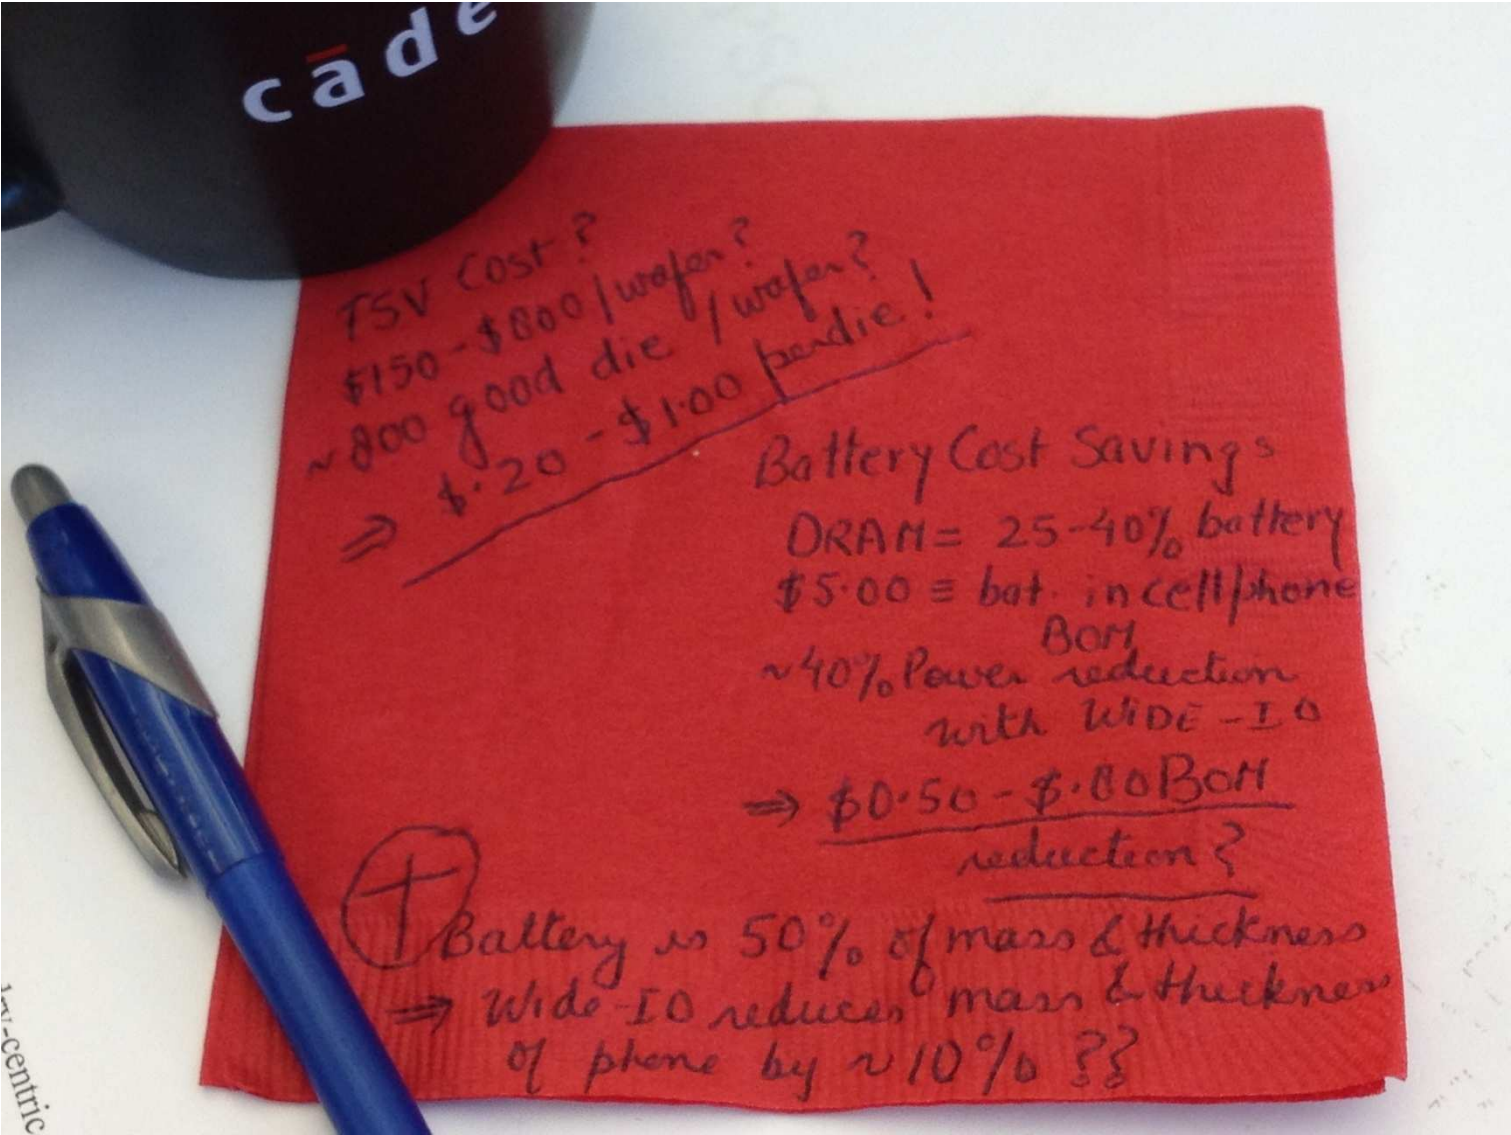 cāde
TSV Cost?
$150-$800/wafer?
~800 good die /wafer?
⇒ $.20 - $1.00 perdie!
Battery Cost Savings
DRAM = 25-40% battery
$5.00 ≡ bat. in cell phone
BOM
~40% Power reduction
with WiDE-IO
⇒ $0.50 - $.80 BOM
reduction?
+
Battery is 50% of mass & thickness
⇒ Wide-IO reduces mass & thickness
of phone by ~10% ??
ry-centric